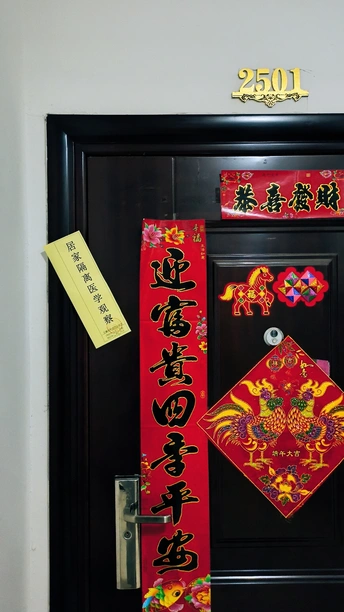 2501
恭喜發財
居家隔离医学观察
迎富貴四季平安